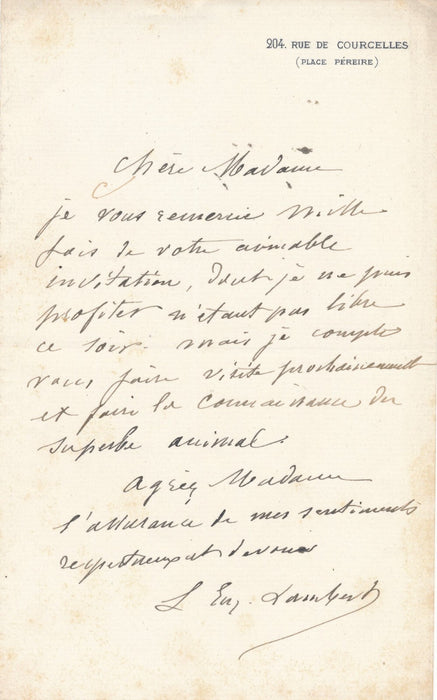 204. RUE DE COURCELLES
(PLACE PÉREIRE)
Chère Madame
je vous remercie mille
fois de votre aimable
invitation, dont je ne puis
profiter n'étant pas libre
ce soir. mais je compte
vous faire visite prochainement
et faire la connaissance du
superbe animal.
Agréez Madame
l'assurance de mes sentiments
respectueux et dévoués
L Eug. Lambert